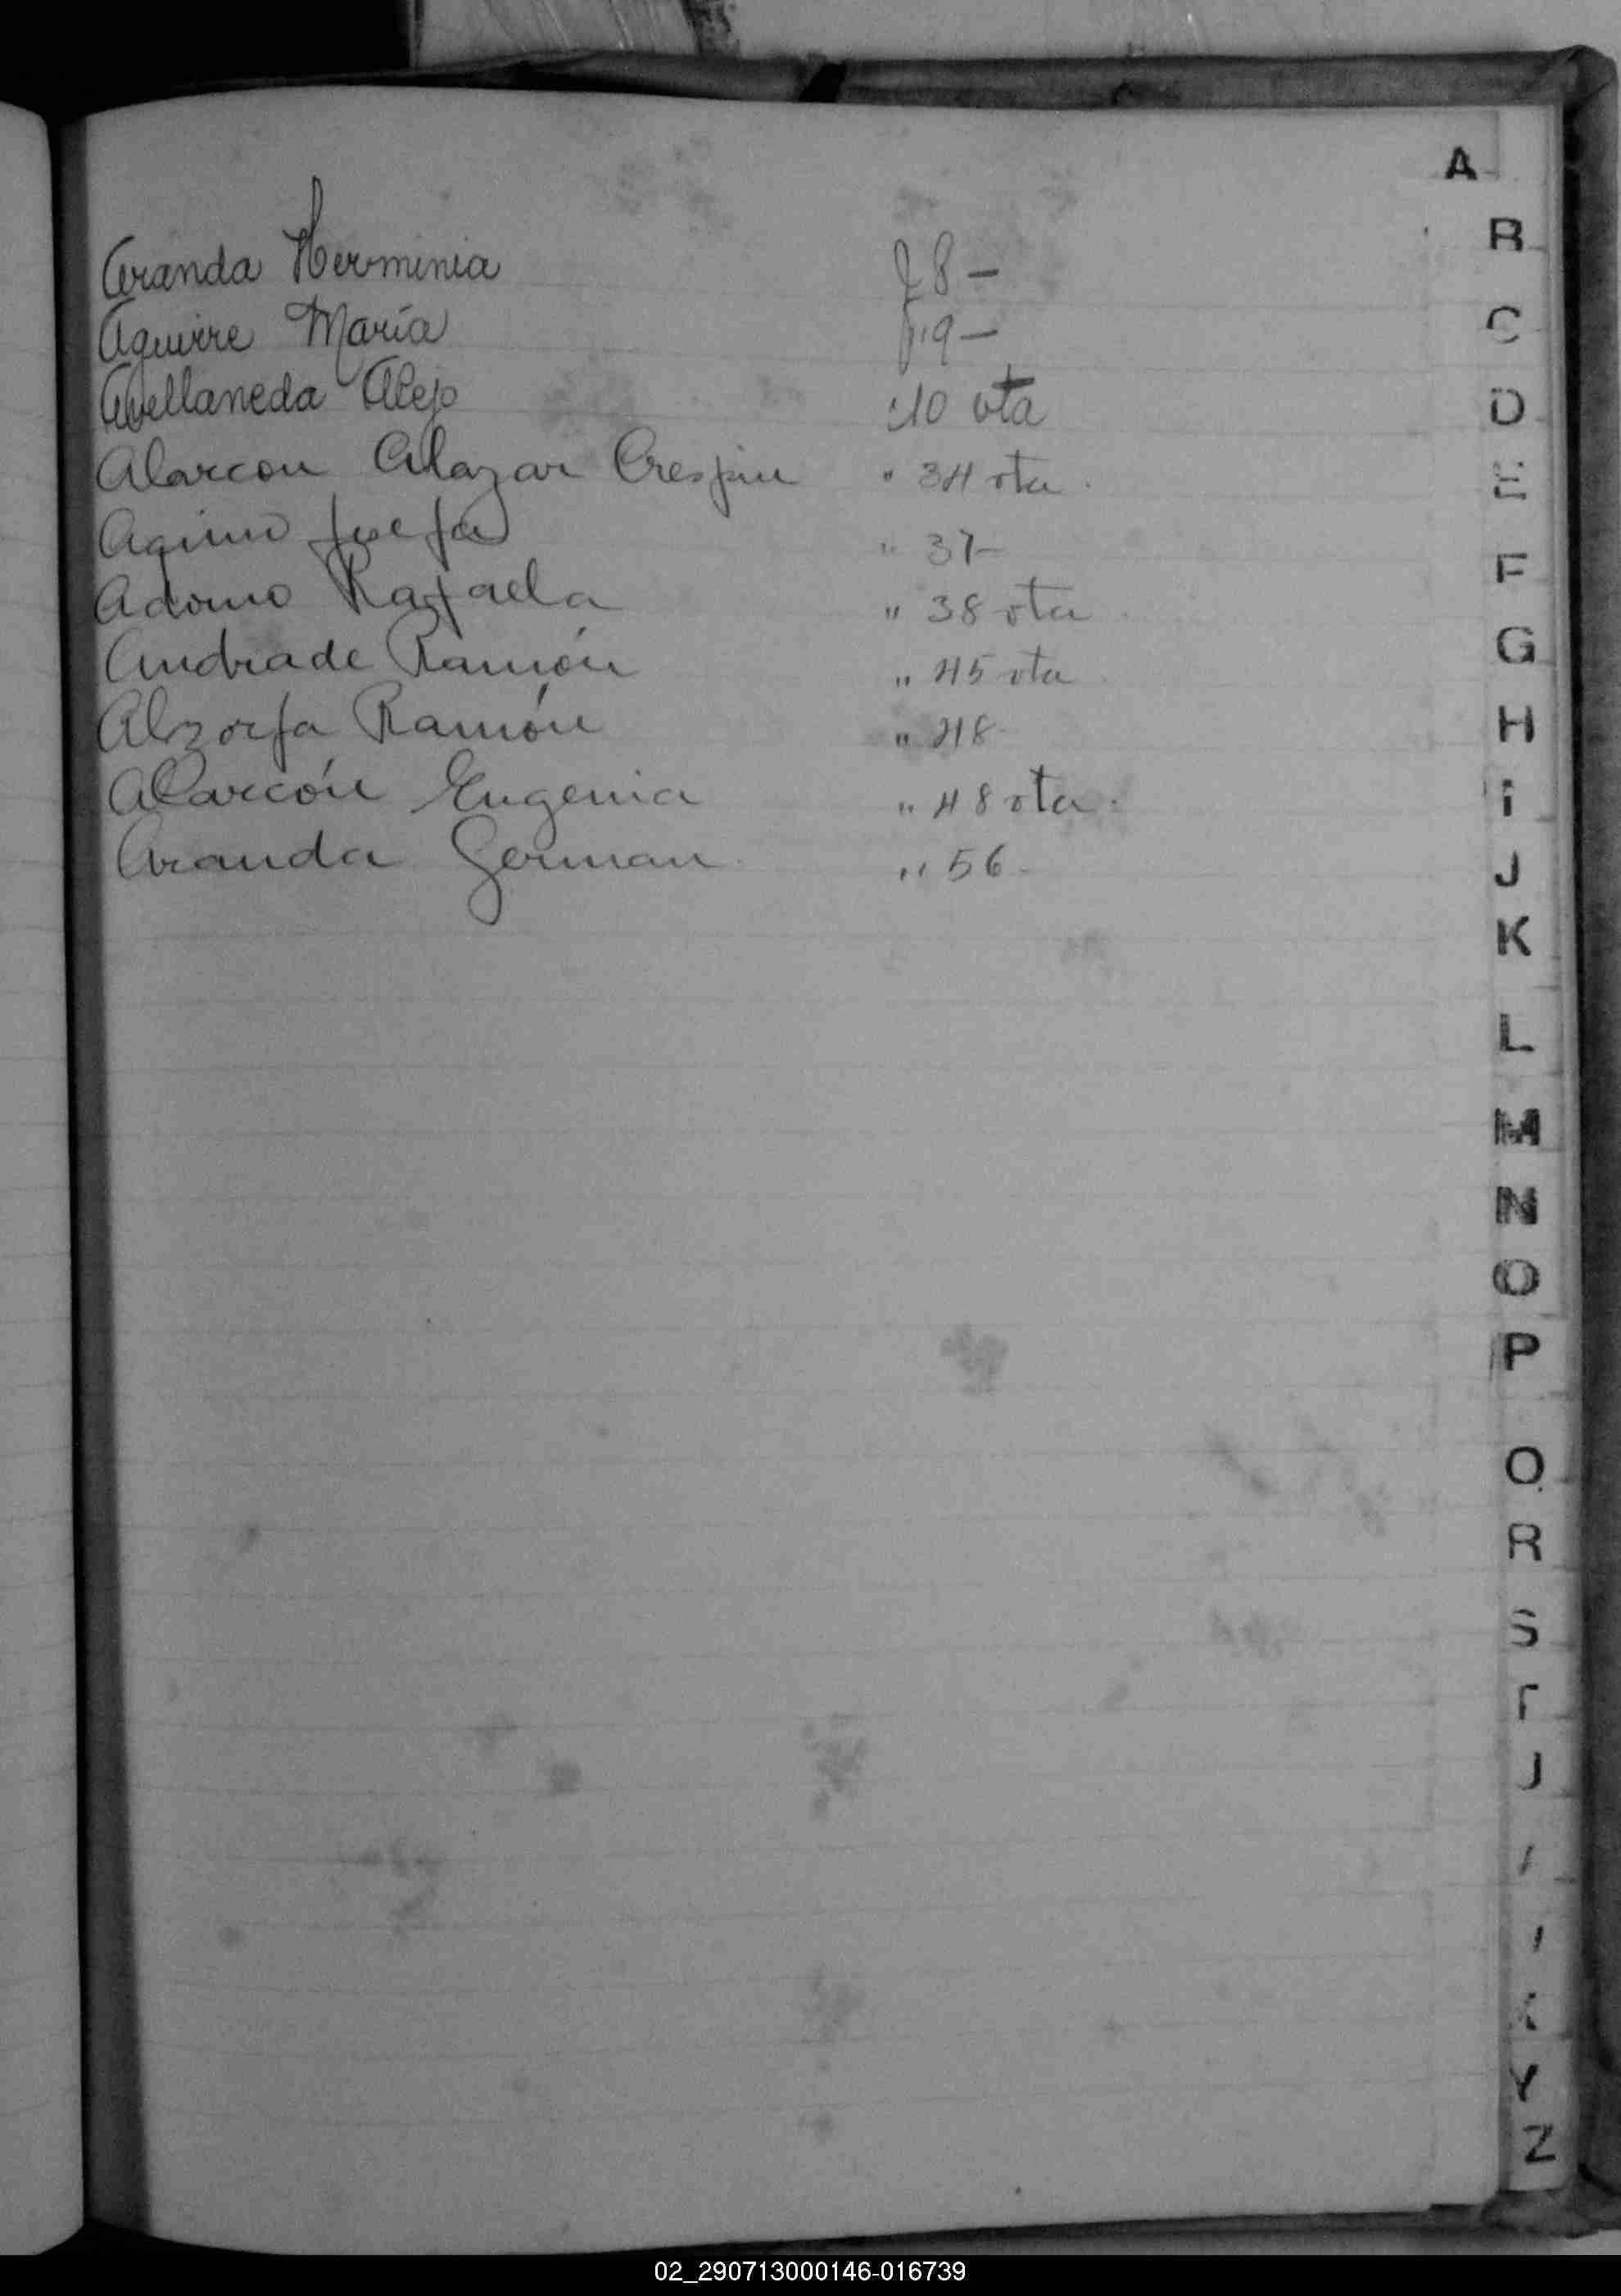 A
Aranda Herminia f 8 -
Aguirre María f. 9 -
Avellaneda Alejo " 10 vta
Alarcon Alazar Crespin " 34 vta.
Aquino Josefa " 37 -
Adorno Rafaela " 38 vta
Andrade Ramón " 45 vta
Ramón " 48
Alarcón Eugenia " 48 vta.
Aranda German " 56 -
B
C
D
E
F
G
H
i
J
K
L
M
N
O
P
Q
R
S
Y
Z
02_290713000146-016739